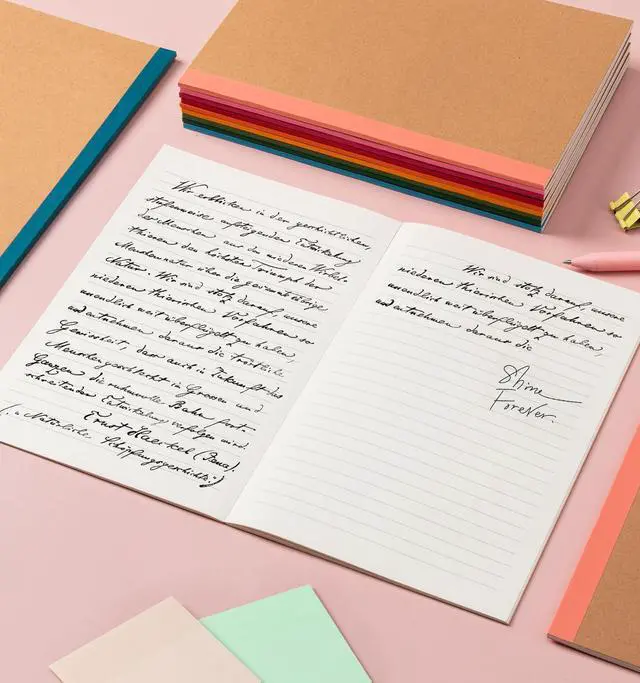 Wir erblicken in der geschichtlichen,
stufenweise aufsteigenden Entwickelung
des Menschen aus den niederen Wirbel-
thieren den höchsten Triumph der
Menschennatur über die gesammte übrige
Natur. Wir sind stolz darauf, unsere
niederen thierischen Vorfahren so
unendlich weit überflügelt zu haben,
und entnehmen daraus die tröstliche
Gewissheit, dass auch in Zukunft das
Menschengeschlecht im Grossen und
Ganzen die ruhmvolle Bahn fort-
schreitender Entwickelung verfolgen wird.
Ernst Haeckel (Jena).
(in Natürliche Schöpfungsgeschichte)
Wir sind stolz darauf, unsere
niederen thierischen Vorfahren so
unendlich weit überflügelt zu haben,
und entnehmen daraus die
Shine
Forever.